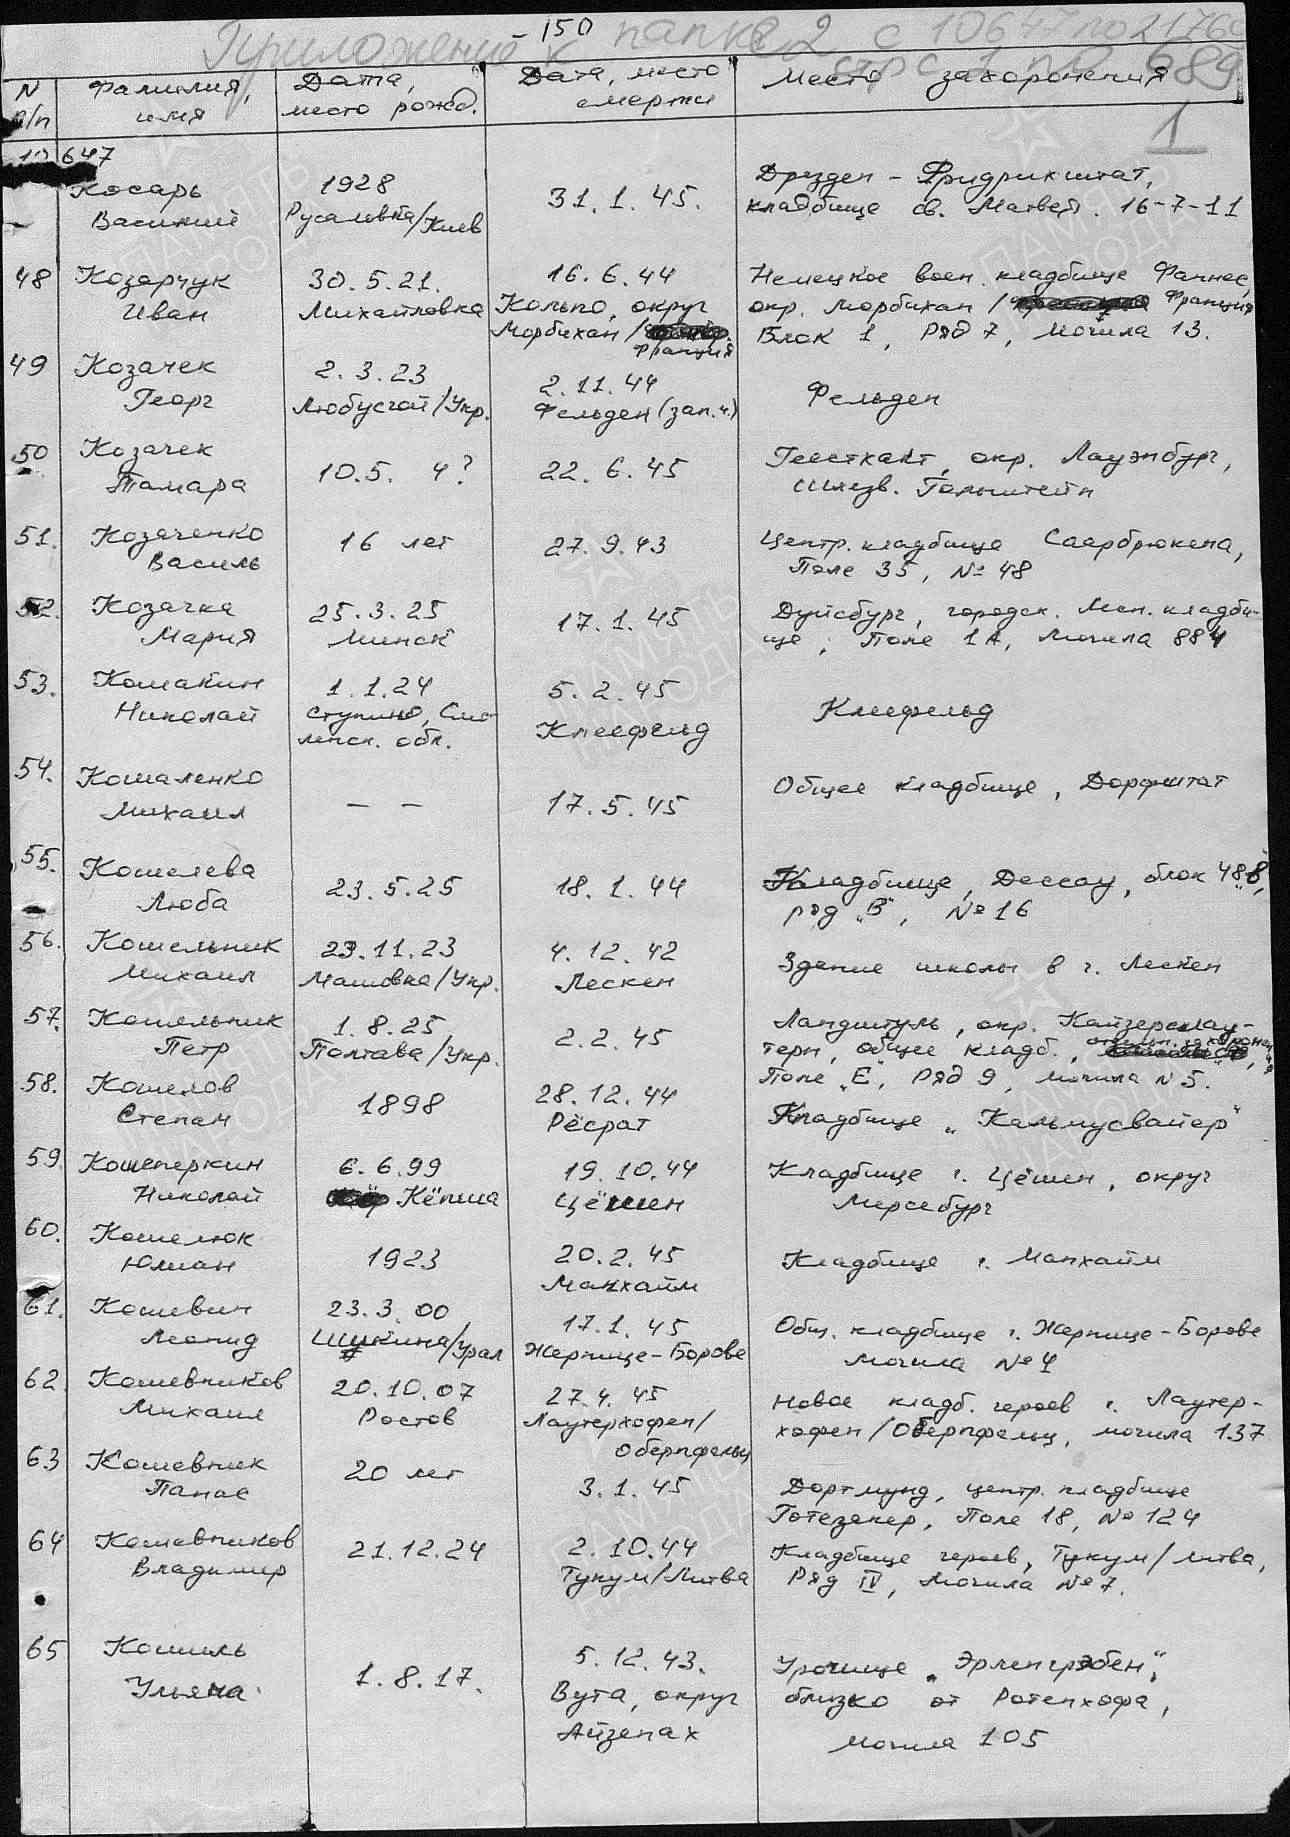 - 150
Приложение к папке 2 с 10647 по 21760
стр с 1 по 689
N п/п
Фамилия, имя
Дата, место рожд.
Дата, место смерти
Место захоронения
1
10647
Косарь
Василий
1928
Русаливка/Киев
31.1.45.
Дрезден - Фридрихштат,
кладбище св. Матвея. 16-7-11
48
Козарчук
Иван
30.5.21.
Михайловка
16.6.44
Кольпо, округ
Морбихан /
Франция
Немецкое воен. кладбище Фаннее,
окр. Морбихан / Франция
Блок 1, Ряд 7, могила 13.
49
Козачек
Георг
2.3.23
Любусгай/Укр.
2.11.44
Фельден (зап.ч.)
Фельден
50
Козачек
Тамара
10.5. 4?
22.6.45
Геестхахт, окр. Лауэнбург,
Шлезв. Гольштейн
51.
Козаченко
Василь
16 лет
27.9.43
Центр. кладбище Саарбрюкена,
Поле 35, № 48
52.
Козачка
Мария
25.3.25
Минск
17.1.45
Дуйсбург, городск. Меп. кладби-
ще, Поле 1А, Могила 884
53.
Кошакин
Николай
1.1.24
Ступино, Смо-
ленск. обл.
5.2.45
Клеефельд
Клеефельд
54.
Кошаленко
Михаил
— —
17.5.45
Общее кладбище, Дорфштат
55.
Кошелева
Люба
23.5.25
18.1.44
Кладбище, Дессау, блок 48 "8",
ряд "В", № 16
56.
Кошельник
Михаил
23.11.23
Машовка/Укр.
4.12.42
Лескен
Здание школы в г. Лескен
57.
Кошельник
Петр
1.8.25
Полтава/Укр.
2.2.45
Ландштуль, окр. Кайзерслау-
терн, общее кладб.,
Поле "Е", Ряд 9, могила N 5.
58.
Кошелов
Степан
1898
28.12.44
Рёсрат
Кладбище "Кальмусвайер"
59.
Кошеперкин
Николай
6.6.99
Кёпша
19.10.44
Цёшен
Кладбище г. Цёшен, округ
Мерсебург
60.
Кошелюк
Юлиан
1923
20.2.45
Манхайм
Кладбище г. Манхайм
61.
Кошевин
Леонид
23.3.00
Щукина/Урал
17.1.45
Жернице-Борове
Общ. кладбище г. Жернице-Борове
могила № 4
62
Кошевников
Михаил
20.10.07
Ростов
27.4.45
Лаутерхофен/
Оберпфельц
Новое кладб. героев г. Лаутер-
хофен/Оберпфельц, могила 137
63
Кошевник
Панас
20 лет
3.1.45
Дортмунд, центр. кладбище
Готезакер, Поле 18, № 124
64
Кошевников
Владимир
21.12.24
2.10.44
Тукум/Литва
Кладбище героев, Тукум/Литва,
Ряд IV, Могила № 7.
65
Кошиль
Ульяна
1.8.17.
5.12.43.
Вута, округ
Айзенах
Урочище "Эрленгребен",
близко от Ротенхофа,
могила 105